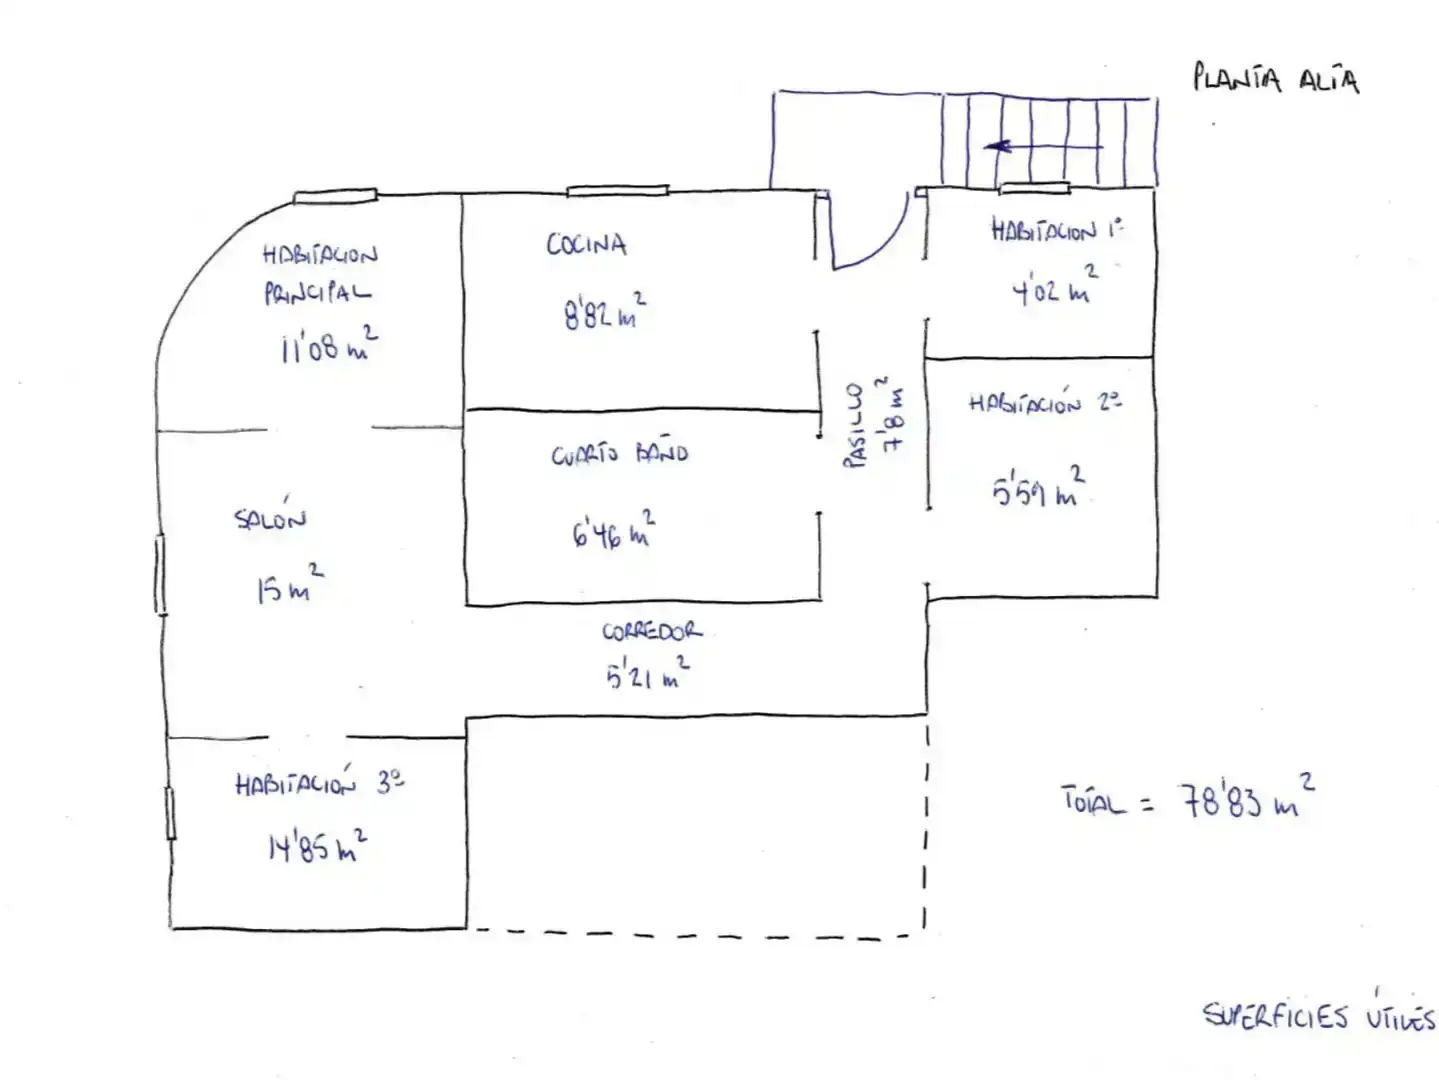 PLANTA ALTA
HABITACION 1ª
4'02 m²
HABITACION
PRINCIPAL
11'08 m²
COCINA
8'82 m²
PASILLO
7'8 m²
HABITACIÓN 2ª
5'59 m²
CUARTO BAÑO
6'46 m²
SALÓN
15 m²
CORREDOR
5'21 m²
HABITACIÓN 3ª
14'85 m²
TOTAL = 78'83 m²
SUPERFICIES ÚTILES